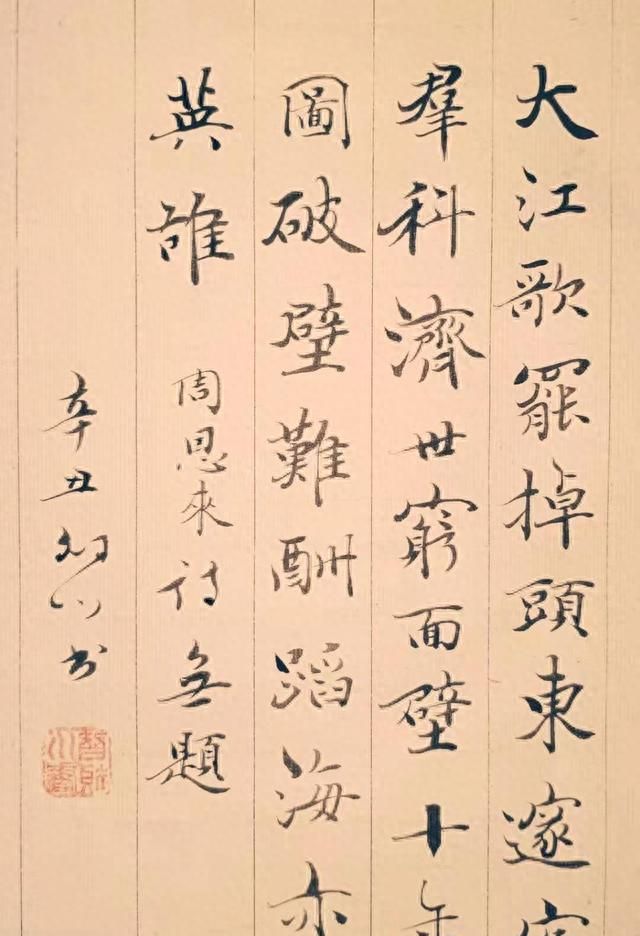 大江歌罷掉頭東邃
羣科濟世窮面壁十年
圖破壁難酬蹈海亦
英雄
周恩來詩無題
辛丑 川书